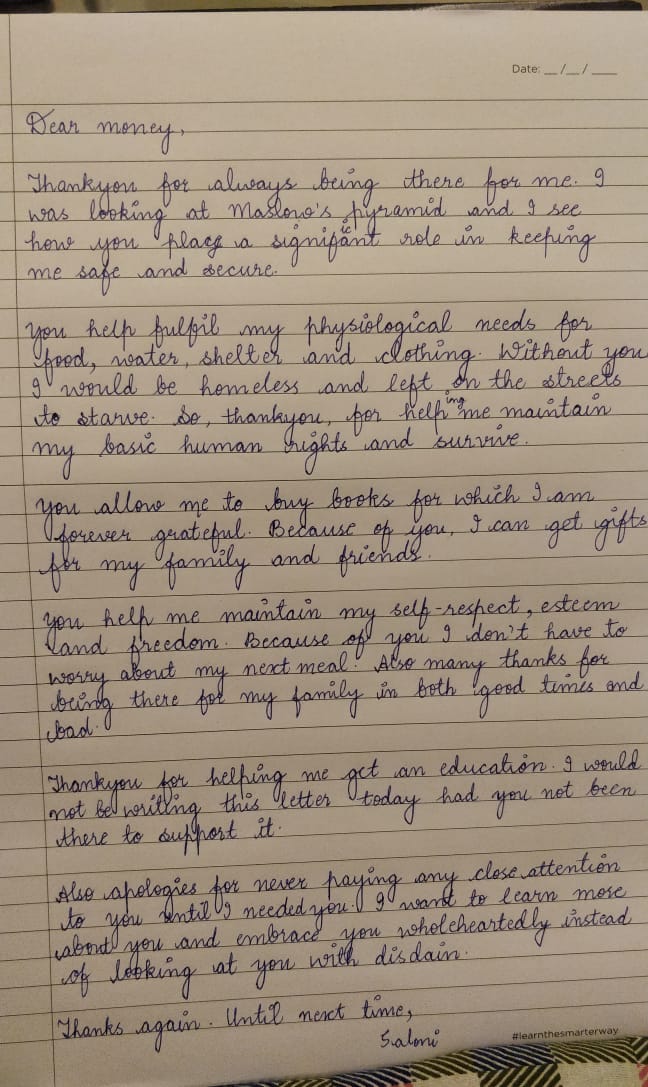 Date: __/__/____
Dear money,
Thankyou for always being there for me. I
was looking at Maslow's pyramid and I see
how you plays a signifi^{ic}ant role in keeping
me safe and secure.
You help fulfil my physiological needs for
food, water, shelter and clothing. Without you
I would be homeless and left on the streets
to starve. So, thankyou, for helping me maintain
my basic human rights and survive.
You allow me to buy books for which I am
forever grateful. Because of you, I can get gifts
for my family and friends.
You help me maintain my self-respect, esteem
and freedom. Because of you I don't have to
worry about my next meal. Also many thanks for
being there for my family in both good times and
bad.
Thankyou for helping me get an education. I would
not be writing this letter today had you not been
there to support it.
Also apologies for never paying any close attention
to you until I needed you. I want to learn more
about you and embrace you wholeheartedly instead
of looking at you with disdain.
Thanks again. Until next time,
Saloni
#learnthesmarterway